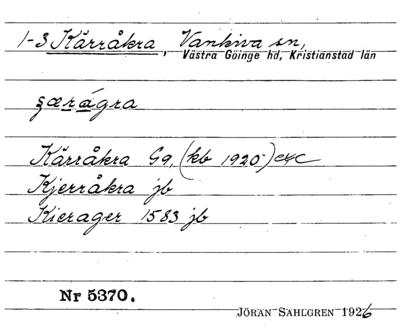 1-3 Kärråkra, Vankiva sn,
Västra Göinge hd, Kristianstad län
şærágra
Kärråkra Gg, (kb 1920-) etc
Kjerråkra jb
Kierager 1583 jb
Nr 5370.
JÖRAN SAHLGREN 1926